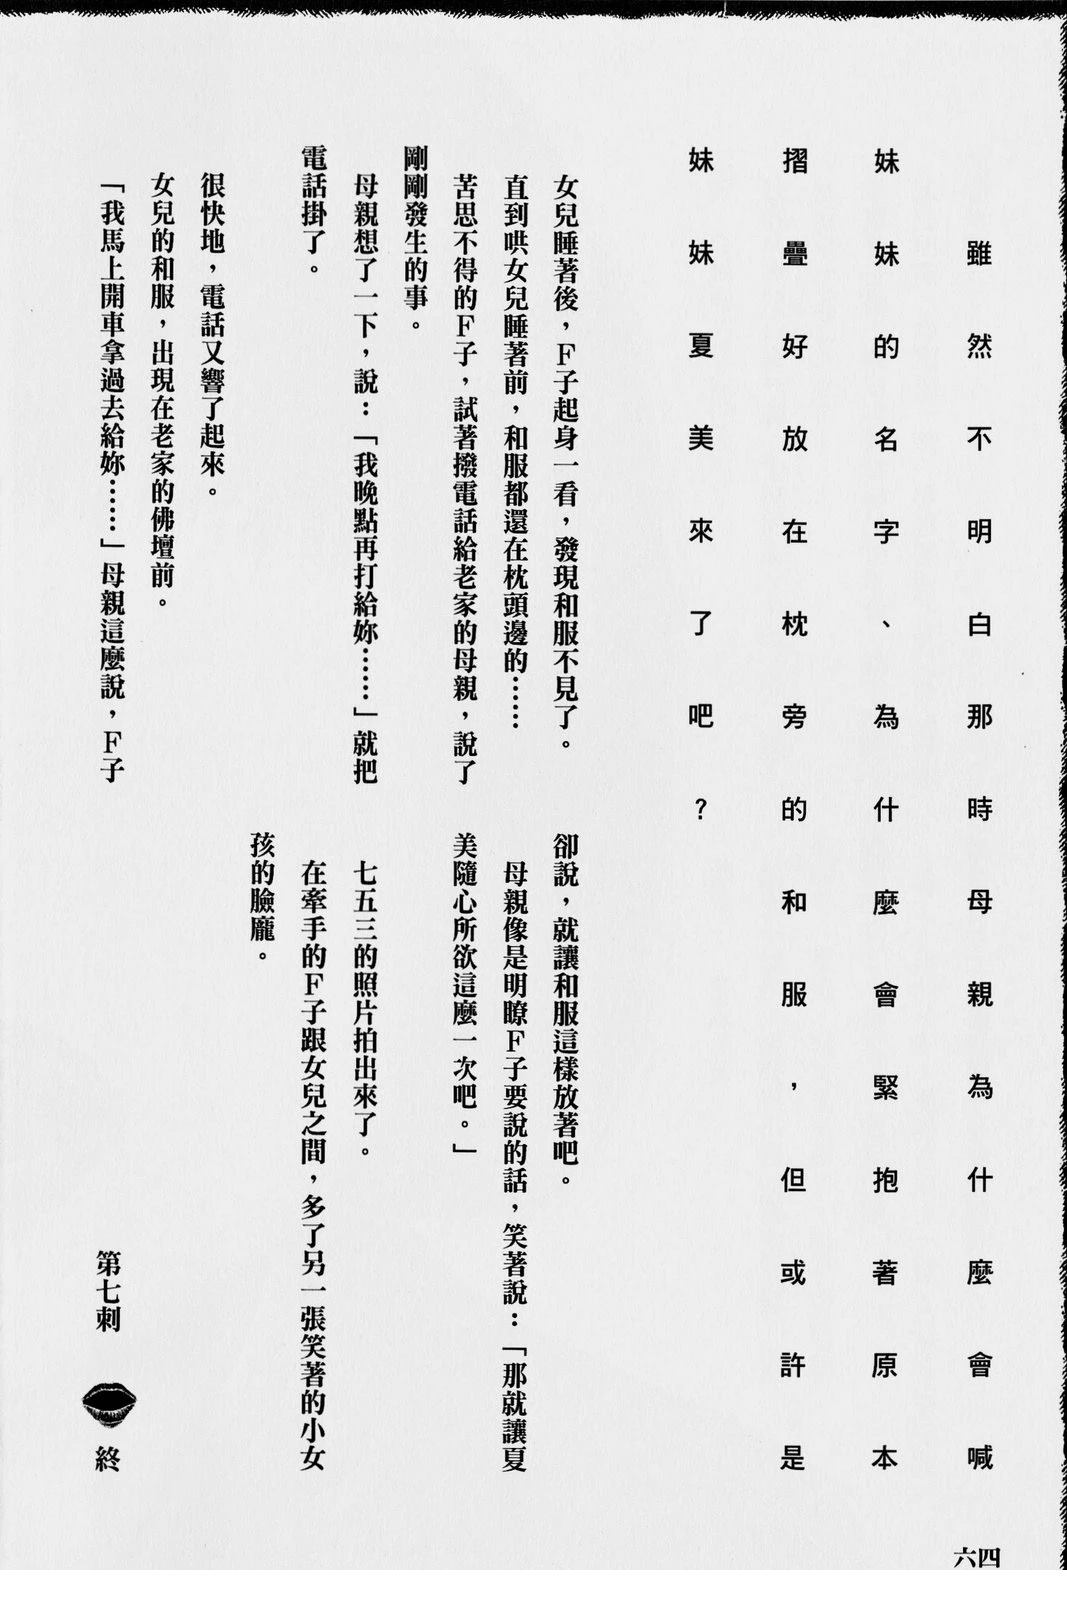 雖然不明白那時母親為什麼會喊
妹妹的名字、為什麼會緊抱著原本
摺疊好放在枕旁的和服，但或許是
妹妹夏美來了吧？
女兒睡著後，Ｆ子起身一看，發現和服不見了。
直到哄女兒睡著前，和服都還在枕頭邊的……
苦思不得的Ｆ子，試著撥電話給老家的母親，說了
剛剛發生的事。
母親想了一下，說：「我晚點再打給妳……」就把
電話掛了。
很快地，電話又響了起來。
女兒的和服，出現在老家的佛壇前。
「我馬上開車拿過去給妳……」母親這麼說，Ｆ子
卻說，就讓和服這樣放著吧。
母親像是明瞭Ｆ子要說的話，笑著說：「那就讓夏
美隨心所欲這麼一次吧。」
七五三的照片拍出來了。
在牽手的Ｆ子跟女兒之間，多了另一張笑著的小女
孩的臉龐。
第七刺 終
六四